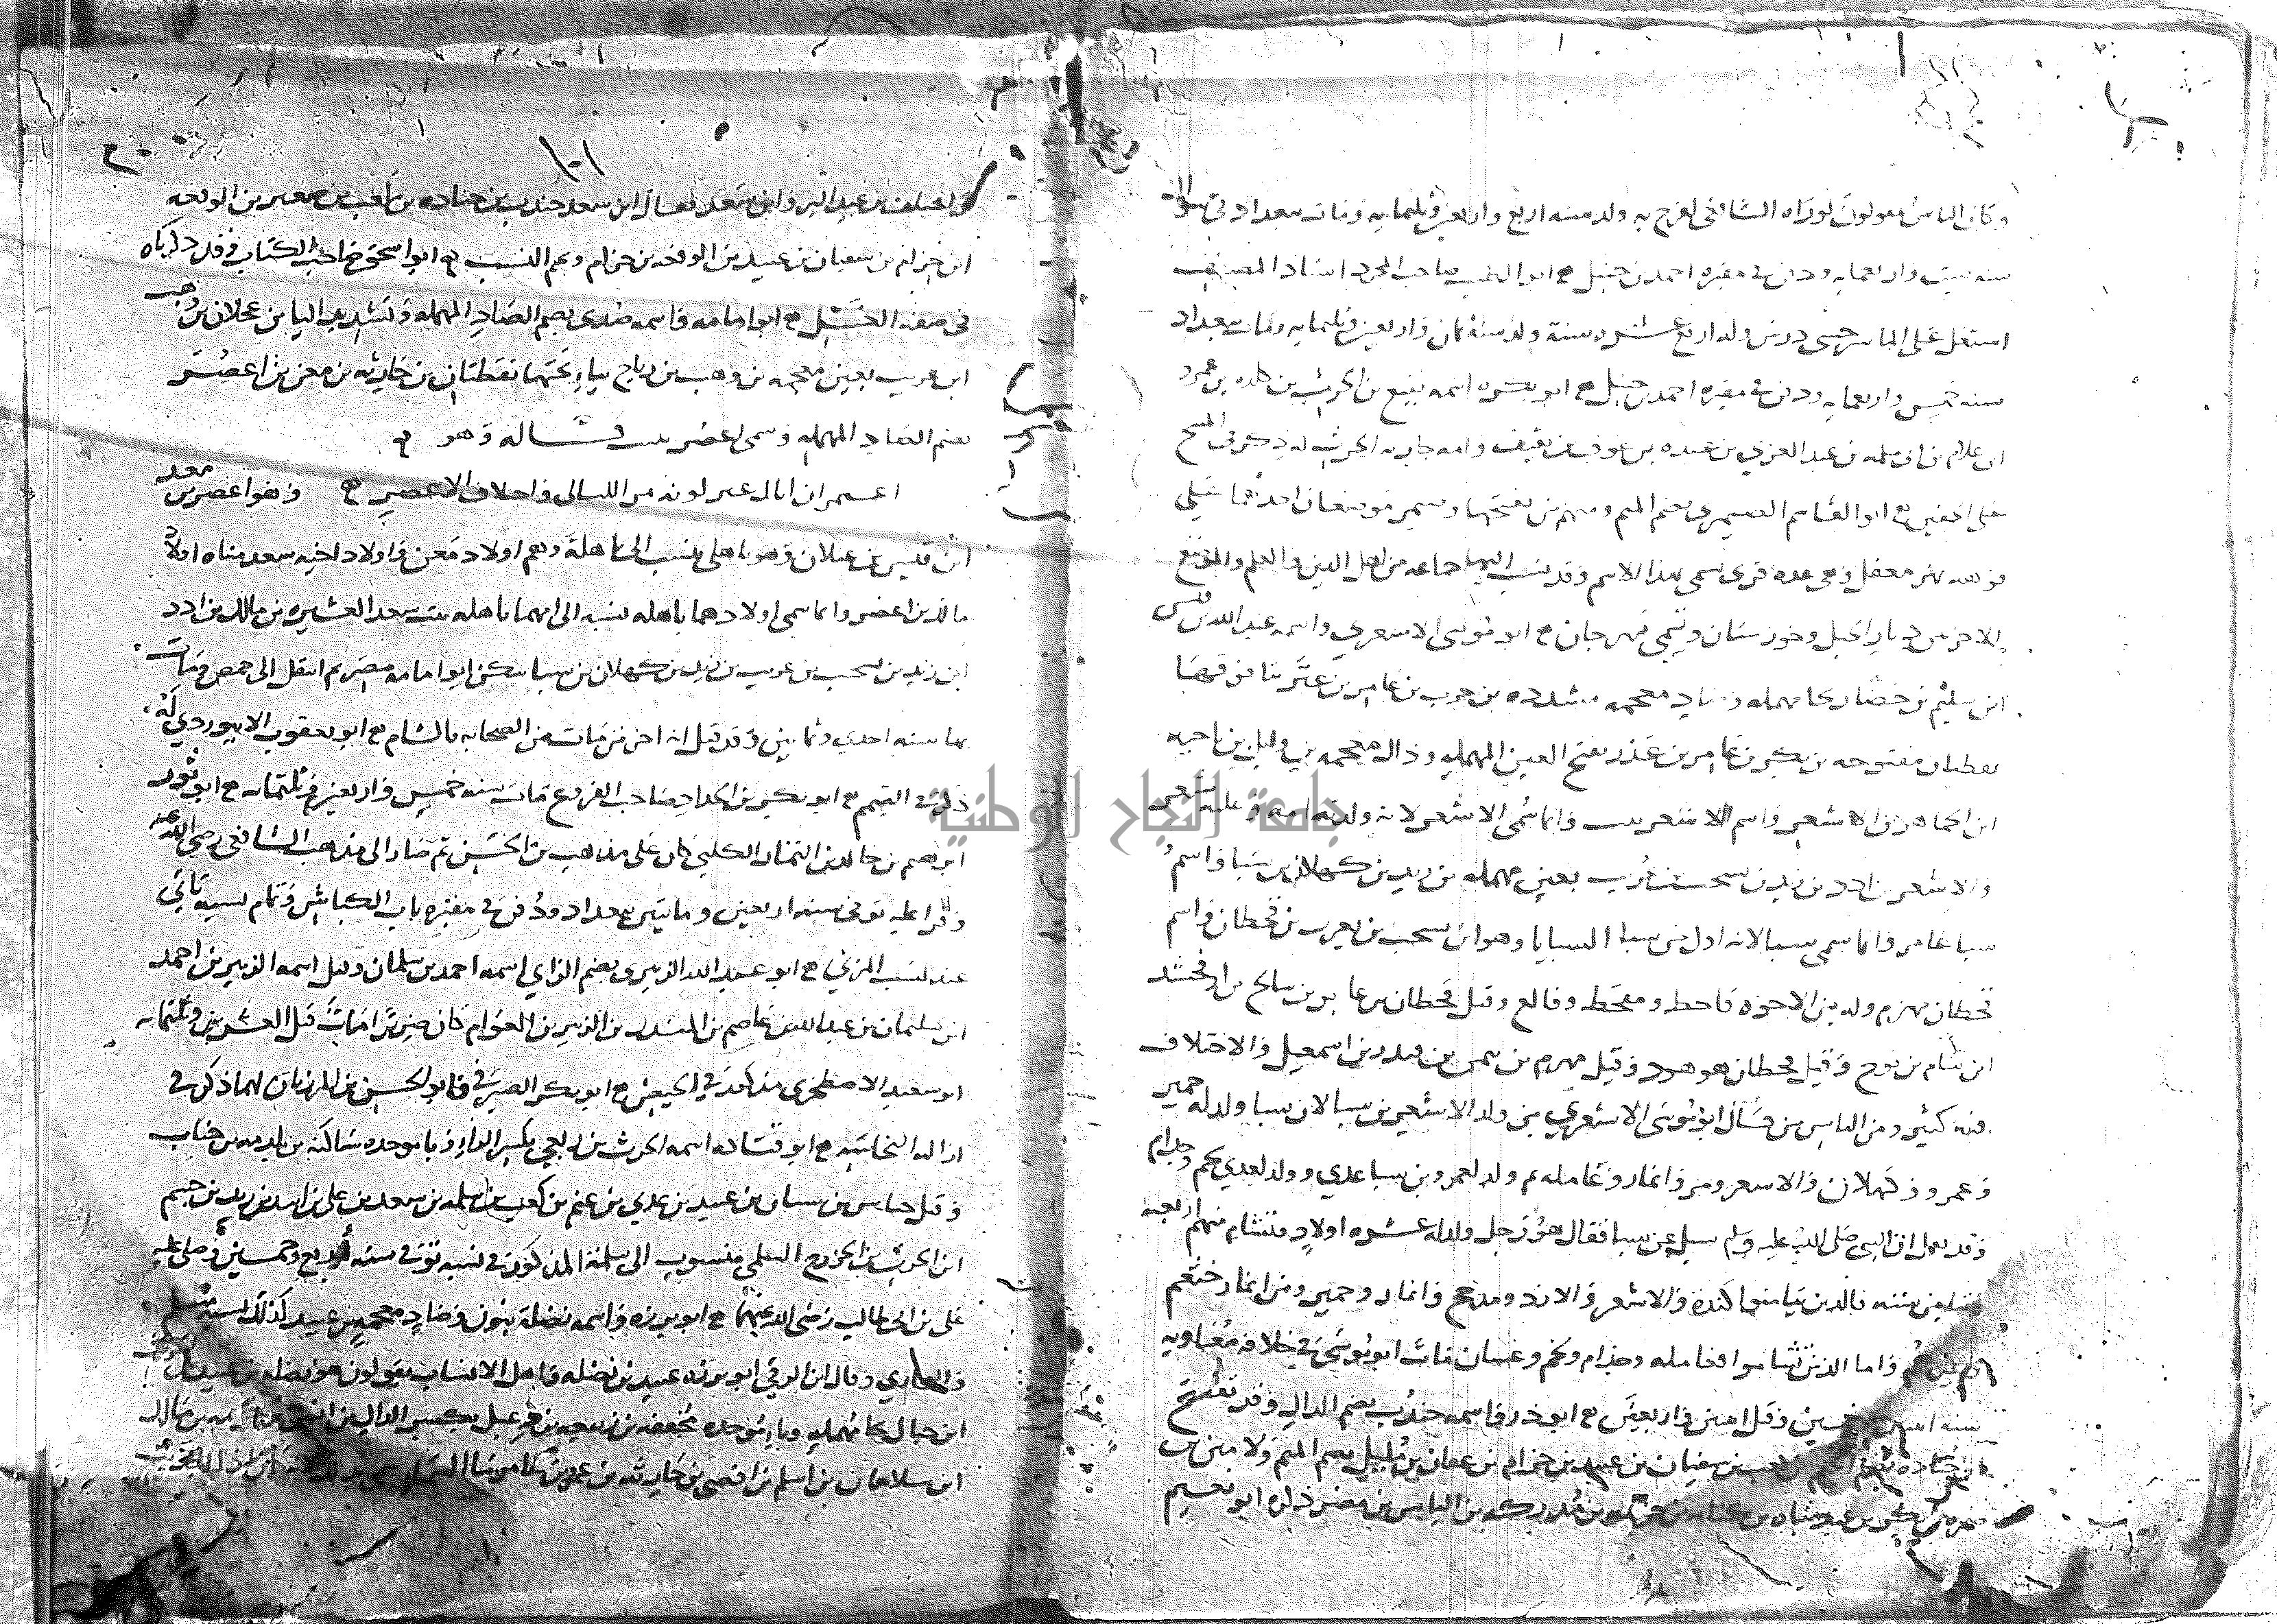 وكان الناس يقولون لو راه الشافعي لفرح به ولد سنه اربع واربعين وثلثمايه ومات ببغداد في شوال
سنه ست واربعمايه ودفن في مقبره احمد بن حنبل ابو الطيب صاحب المجرد استاذ المصنف
اشتغل على الماسرجسى درس وله اربع عشره سنة ولد سنة ثمان واربعين وثلثمايه ومات ببغداد
سنه خمس واربعمايه ودفن في مقبره احمد بن حنبل ابو بكره اسمه نفيع بن الحرث بن كلده بن عمرو
ابن علاج بن ابى سلمه بن عبد العزي بن عبده بن عوف بن ثقيف وامه جاريه الحرث له ذكر في المسح
على الخفين ابو القاسم الصيمري بضم الميم ومنهم من يفتحها وصيمر موضعان احدهما
نهر معقل وهي عده قرى تسمى بهذا الاسم وقد نسب اليها جماعه من اهل الدين والعلم والموضع
الاخر من بلاد الجبل وخوزستان وتسمى مهرجان ابو موسى الاشعري واسمه عبد الله بن قيس
ابن سليم بن حضار بحا مهمله وضاد معجمه مشدده بن حرب بن عامر بن عتر بتا فوقها
نقطتان مفتوحه بن بكر بن عامر بن عذر بفتح العين المهمله وذال معجمه بن وايل بن ناجيه
ابن الجماهر بن الاشعر واسم الاشعر نبت وانما سمي الاشعر لانه ولدته امه وعليه شعر
والاشعر بن ادد بن زيد بن يشجب بن عريب بعين مهمله بن زيد بن كهلان بن سبا واسم
سبا عامر وانما سمى سبا لانه اول من سبا السبايا وهو ابن يشجب بن يعرب بن قحطان واسم
قحطان مهزم ولد من الاخوه قاحط ومقحط وفالغ وقيل قحطان بن عابر بن شالخ بن ارفخشد
ابن سام بن نوح وقيل قحطان هو هود وقيل مهرم بن بن قيدر بن اسمعيل والاختلاف
فيه كثير ومن الناس من قال ابو موسى الاشعري من ولد الاشعر بن سبا لان سبا ولد له حمير
وعمرو وكهلان والاشعر ومر وانمار وعامله ثم ولد لعمرو بن سبا عدي وولد لعدي لخم وجذام
وقد نقل ان النبي صلى الله عليه وسلم سيل عن سبا فقال هو رجل ولد له عشره اولاد فتشام منهم اربعه
وتيامن سته فالذين تيامنوا كنده والاشعر والازد ومدحج وانمار وحمير ومن انمار خثعم
واما الذين تشاموا فعامله وجذام ولخم وغسان مات ابو موسى في خلافه معاويه
سنه وخمسين وقيل اثنين واربعين ابو ذر واسمه جندب بضم الدال وقد تفتح
ابن جناده بن سفيان بن عبيد بن حرام بن غفار بن مليل بضم الميم ولامين بن
ضمره بن بكر بن عبد مناه بن كنانه بن خزيمه بن مدركه بن الياس بن مضر ذكره ابو نعيم
١٠١
واختلف بن عبد البر وابن سعد فقال ابن سعد جندب بن جناده بن كعب بن صعير بن الوقعه
ابن حرام بن سفيان بن عبيد بن الوقعه بن حرام وتمم النسب ابو اسحق صاحب الكتاب وقد ذكرناه
في صفه الغسل ابو امامه واسمه صدى بضم الصاد المهمله وتشديد اليا بن عجلان بن وهب
ابن عريب بعين معجمه بن وهب بن رياح بياء تحتها نقطتان بن حارثه بن معن بن اعصر
بضم الصاد المهمله وسمى اعصر ببيت قاله وهو
اعمير ان اباك غير لونه مر الليالى واختلاف الاعصر وهو اعصر بن سعد
ابن قيس بن عيلان وهو باهلى ينسب الى باهلة وهم اولاد معن واولاد اخيه سعد مناه اولاد
مالك بن اعصر وانما سمى اولادهما باهله نسبه الى امهما باهله بنت سعد العشيره بن مالك بن ادد
ابن زيد بن يشجب بن عريب بن زيد بن كهلان بن سبا سكن ابو امامه مصر ثم انتقل الى حمص ومات
بها سنه احدى وثمانين وقد قيل انه اخر من مات من الصحابه بالشام ابو يعقوب الابيوردي له
ذكر في التيمم ابو بكر بن الحداد صاحب الفروع مات سنه خمس واربعين وثلثمايه ابو ثور
ابرهيم بن خالد بن اليمان الكلبي كان على مذهب بن الحسن ثم صار الى مذهب الشافعي رضي الله عنه
وقرا عليه توفى سنه اربعين ومايتين ببغداد ودفن في مقبره باب الكباش وتمام نسبه ياتي
عند نسب المزني ابو عبد الله الزبيري بضم الزاي اسمه احمد بن سلمان وقيل اسمه الزبير بن احمد
ابن سليمان بن عبد الله بن عاصم بن المنذر بن الزبير بن العوام كان ضريرا مات قبل العشرين وثلثمايه
ابو سعيد الاصطخرى مذكور في الحيض ابو بكر الصيرفي وابو الحسن بن المرزبان لهما ذكر في
ازاله النجاسه ابو قتاده اسمه الحرث بن ربعي بكسر الراء وبا موحده ساكنه بن بلدمه بن خناس
وقيل خناس بن سنان بن عبيد بن عدي بن غنم بن كعب بن سلمه بن سعد بن على بن اسد بن يزيد بن جشم
ابن الحرث بن الخزرج السلمى منسوب الى سلمة المذكور في نسبه توفى سنه اربع وخمسين وصلى عليه
على بن ابى طالب رضى الله عنهما ابو برزه واسمه نضلة بنون وضاد معجمه بن عبيد كذلك نسبه مسلم
والبخاري وقال ابن البرقي ابو برزه عبيد بن نضله واهل الانساب يقولون هو نضله بن عبيد
ابن حبال بحا مهمله وباء موحده مخففه بن ربيعه بن دعبل بكسر الدال بن انس بن بن مالك
ابن سلامان بن اسلم بن افصى بن حارثه بن عمرو بن عامر ما السماء سمى بذلك
جامعة النجاح الوطنية